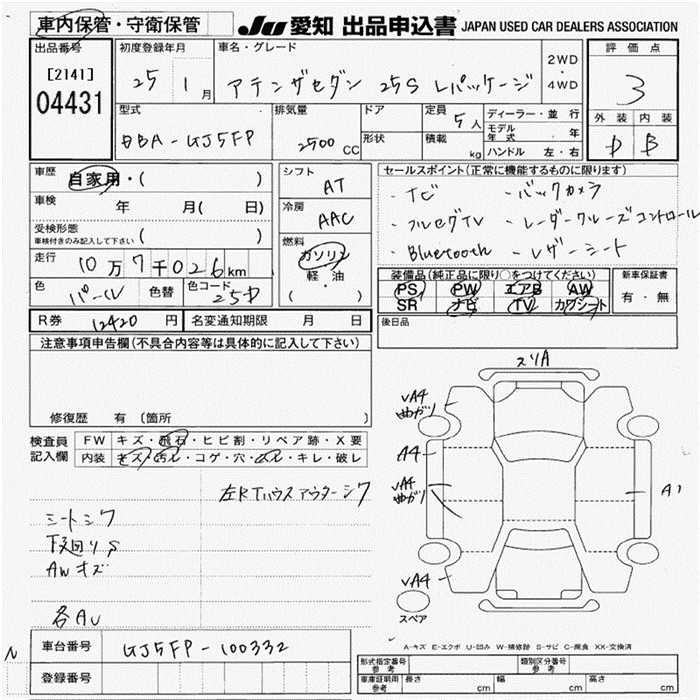 車内保管・守衛保管
JU 愛知 出品申込書 JAPAN USED CAR DEALERS ASSOCIATION
出品番号
[2141]
04431
初度登録年月
25年 1月
車名・グレード
アテンザセダン 25S Lパッケージ
2WD
・
4WD
評価点
3
外装 内装
D B
型式
DBA-GJ5FP
排気量
2500 CC
ドア
形状
定員 5人
積載 kg
ディーラー・並行
モデル年式 ・ 年
ハンドル 左・右
車歴 自家用・( )
車検 年 月( 日)
受検形態
車検付きのみ記入して下さい ( )
走行 10万7千026km
色 パール 色替 色コード 25D
シフト AT
冷房 AAC
燃料
ガソリン
軽・油
( ・ )
セールスポイント(正常に機能するものに限ります)
・ナビ ・バックカメラ
・フルセグTV ・レーダークルーズコントロール
・Bluetooth ・レザーシート
装備品(純正品に限り○をつけてください)
PS PW エアB AW
SR ナビ TV カワシート
新車保証書
有・無
R券 12420円 名変通知期限 月 日
後日品
注意事項申告欄(不具合内容等は具体的に記入して下さい)
修復歴 有(箇所 )
検査員記入欄
FW キズ・飛石・ヒビ割・リペア跡・X要
内装 キズ・汚レ・コゲ・穴・ムレ・キレ・破レ
左Rタハウスアウターシワ
シートシワ
下廻りS
AWキズ
各AU
スリA
VA4
曲ガリ
A4
VA4
曲ガリ
A1
VA4
スペア
A-キズ E-エクボ U-凹み W-補修跡 S-サビ C-腐食 XX-交換済
N
車台番号 GJ5FP-100332
登録番号
形式指定番号 参考
類別区分番号 参考
車庫証明用 参考 長さ cm 幅 cm 高さ cm